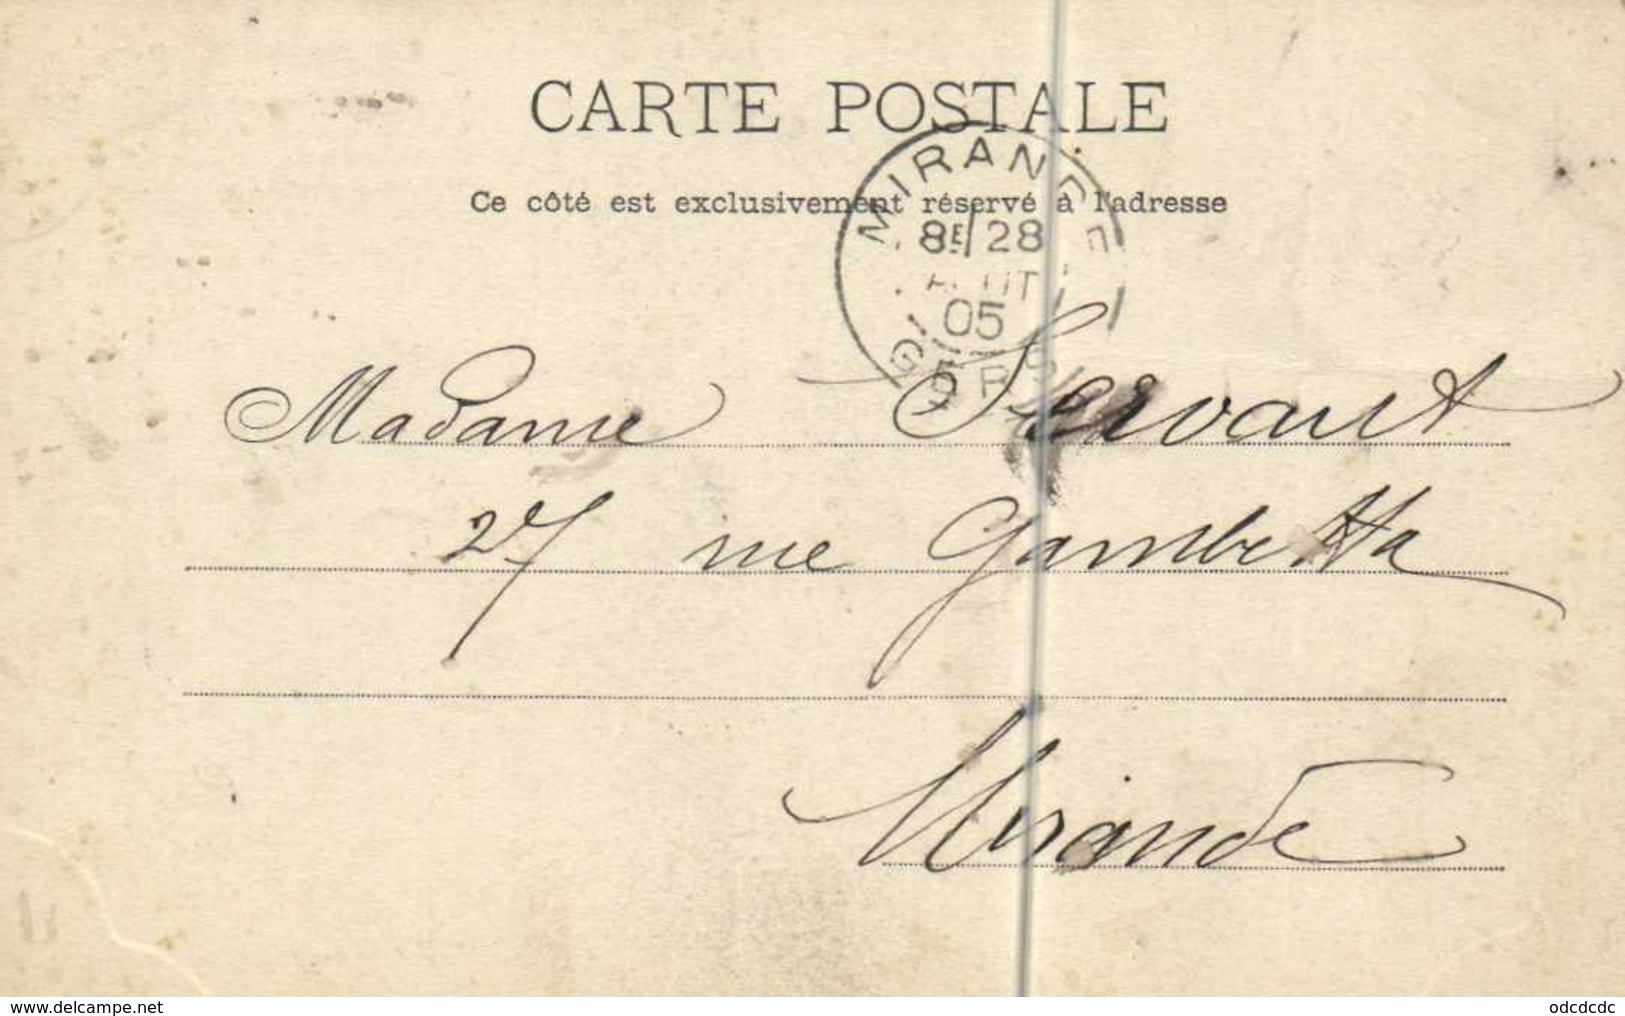 CARTE POSTALE
Ce côté est exclusivement réservé à l'adresse
MIRANDE
8E/28
AOUT
05
GERS
Madame Servant
27 rue Gambetta
Mirande
www.delcampe.net
odcdcdc